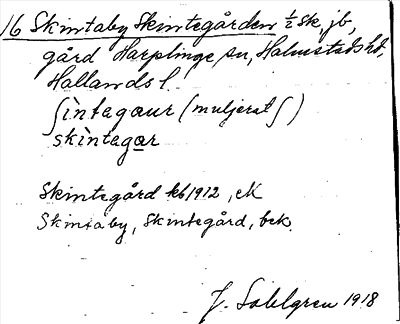 16 Skintaby Skintegården ½ sk, jb,
gård Harplinge sn, Halmstads hd,
Hallands l.
ʃìntegaur (muljerat ʃ)
skìntegar
Skintegård kb 1912, eK
Skintaby, Skintegård, bek.
J. Sahlgren 1918